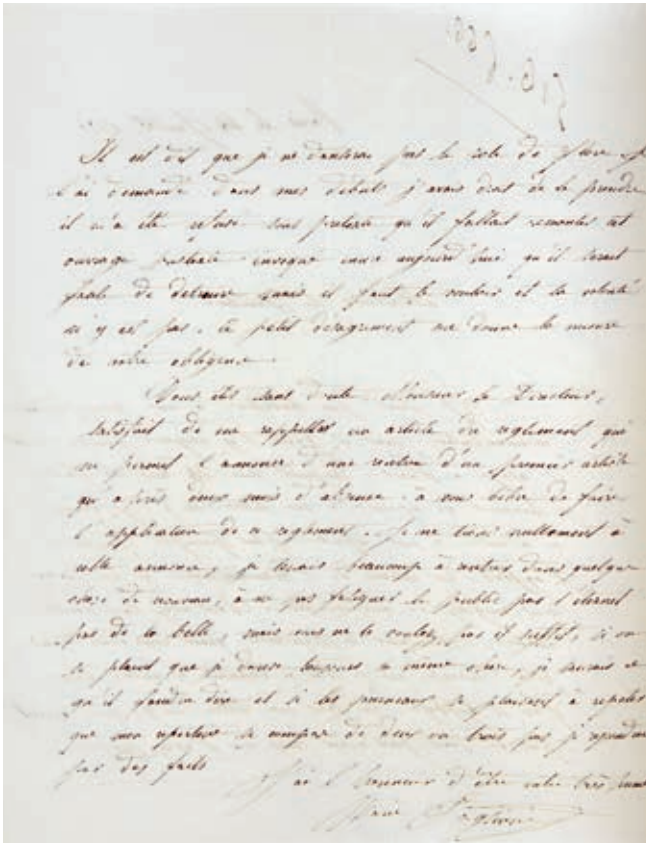 Il est dit que je ne danserai pas le rôle de
l'ai demandé dans mes débuts j'avais droit de le prendre
il m'a été refusé sous prétexte qu'il fallait remonter cet
ouvrage prétexte invoqué encore aujourd'hui qu'il serait
facile de détruire mais il faut le vouloir et la volonté
n'y est pas. Ce petit désagrément me donne la mesure
de votre obligeance.
Vous êtes sans doute Monsieur le Directeur,
satisfait de me rappeller un article du règlement qui
ne permet l'annonce d'une rentrée d'un premier artiste
qu'après deux mois d'absence. à vous libre de faire
l'application de ce règlement. Je ne tiens nullement à
cette annonce, je tenais beaucoup à rentrer dans quelque
chose de nouveau, à ne pas fatiguer le public par l'éternel
pas de la belle, mais vous ne le voulez pas il suffit, si on
se plaint que je danse toujours la même chose, je saurai ce
qu'il faudra dire et si les journaux se plaisent à répéter
que mon répertoire se compose de deux ou trois pas je répondrai
par des faits
J'ai l'honneur d'être votre très
Marie